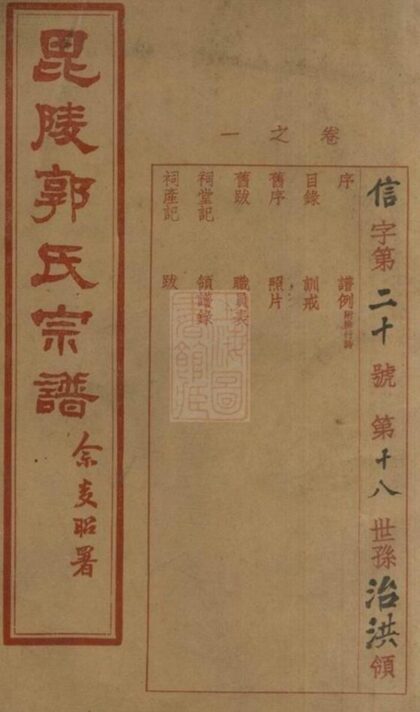 毘陵郭氏宗譜
昭署
卷之一
信字第二十號第十八世孫治洪領
序 譜例
目錄 訓戒
舊序 照片
舊跋 職員表
祠堂記 領譜錄
祠產記 跋
上海圖書館藏